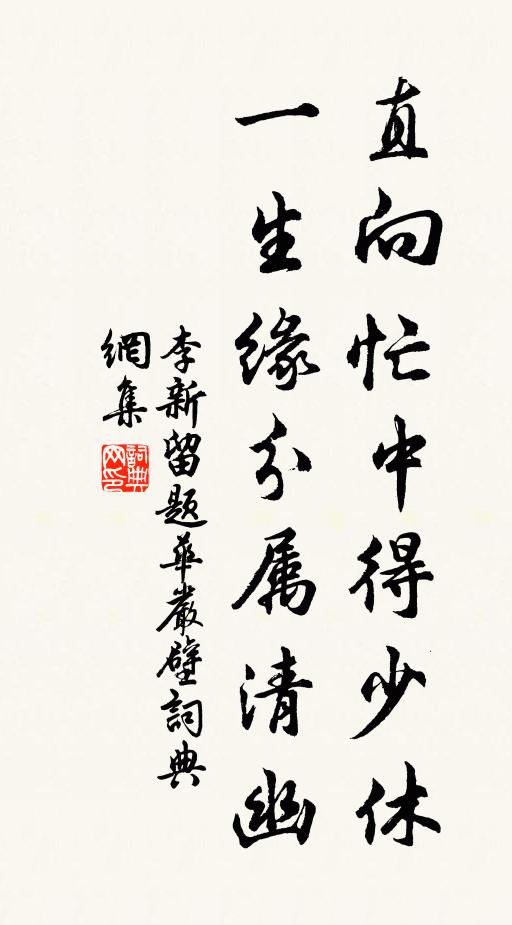 直向忙中得少休
一生缘分属清幽
李新留题華嚴壁詞典
網集
詞典
网印